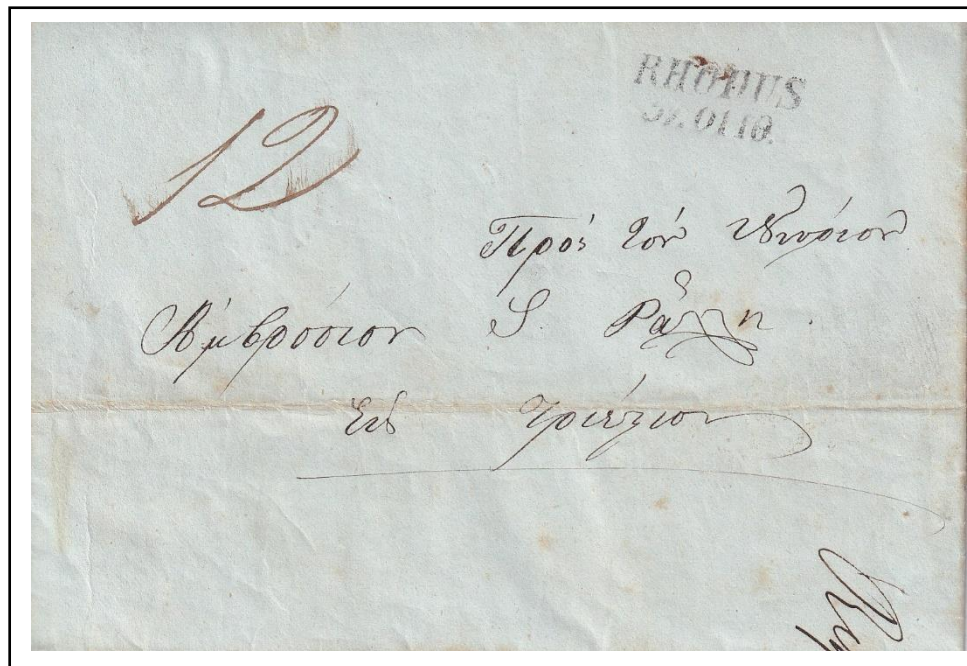 RHODUS
12
Πρός τον Κύριον
Αμβρόσιον S. Ράλλη.
Εις Τριέστιον